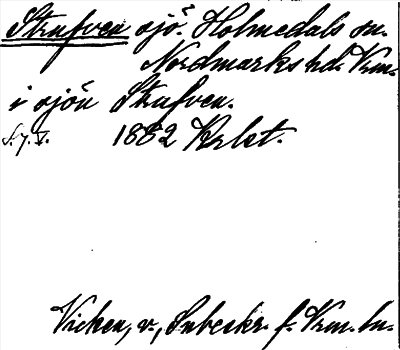 Strufven sjö. Holmedals sn.
Nordmarks hd. Vrm.
i sjön Strufven.
S.7.V. 1882 Krlet.
Vicken, v., Inbeskr. f. Vrm. ln.